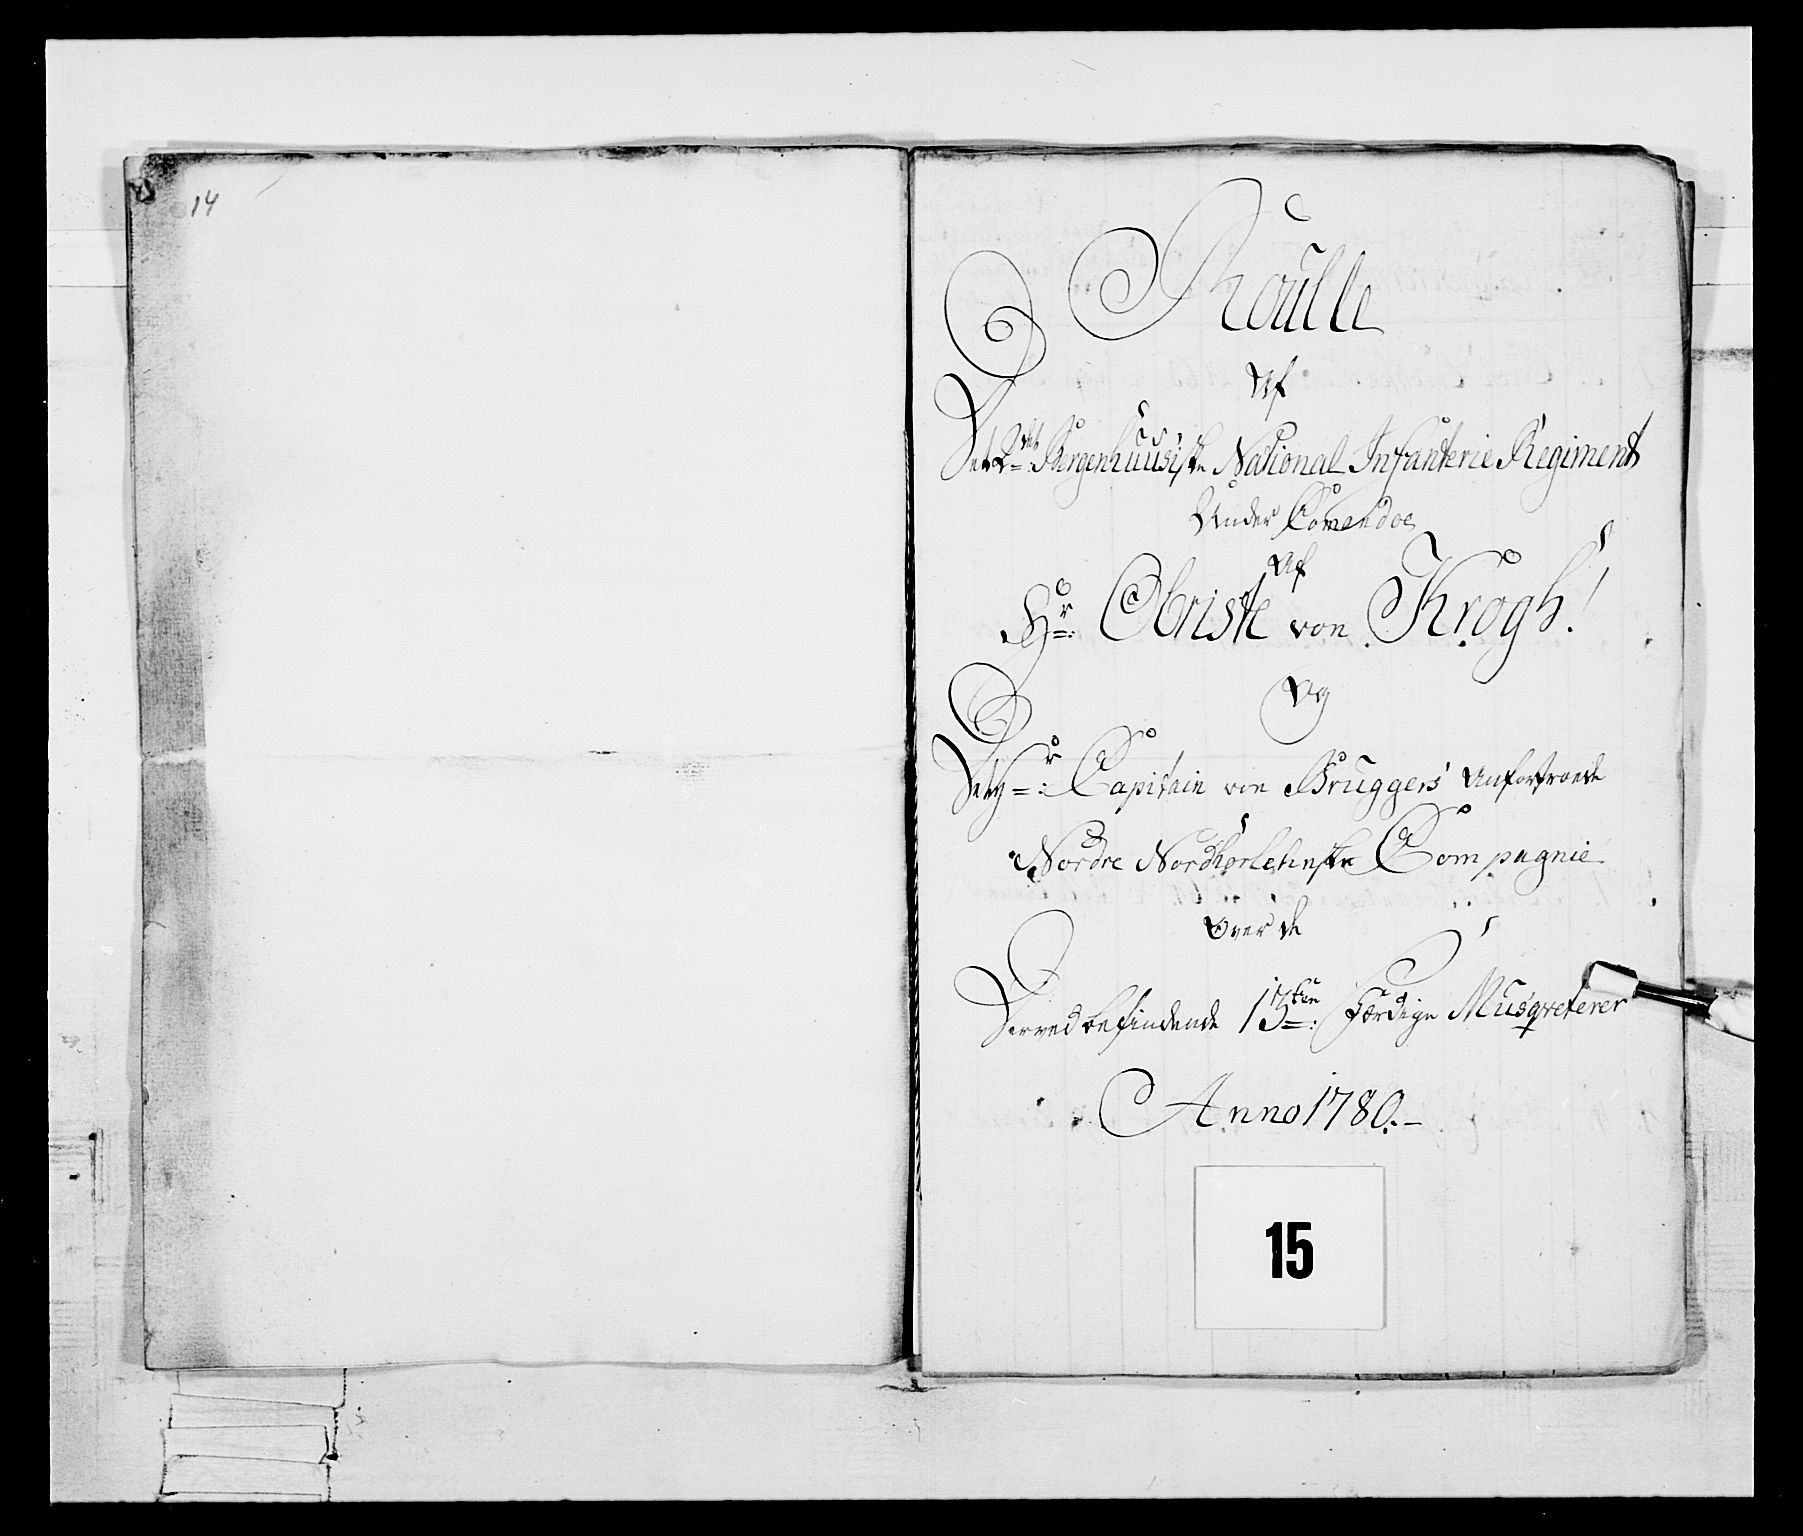 14
Roulle
Af
Det 2det Bergenhuusiske National Infanterie Regiment
Under Comando
Af
Hr: Obriste von Krogh!
Og
Det Hr: Capitain von Bruggers Anfortroede
Nordre Nordhorlehnske Compagnie
Over de
Derved befindende 13ten: Færdige Musqveterer
Anno 1780.-
15